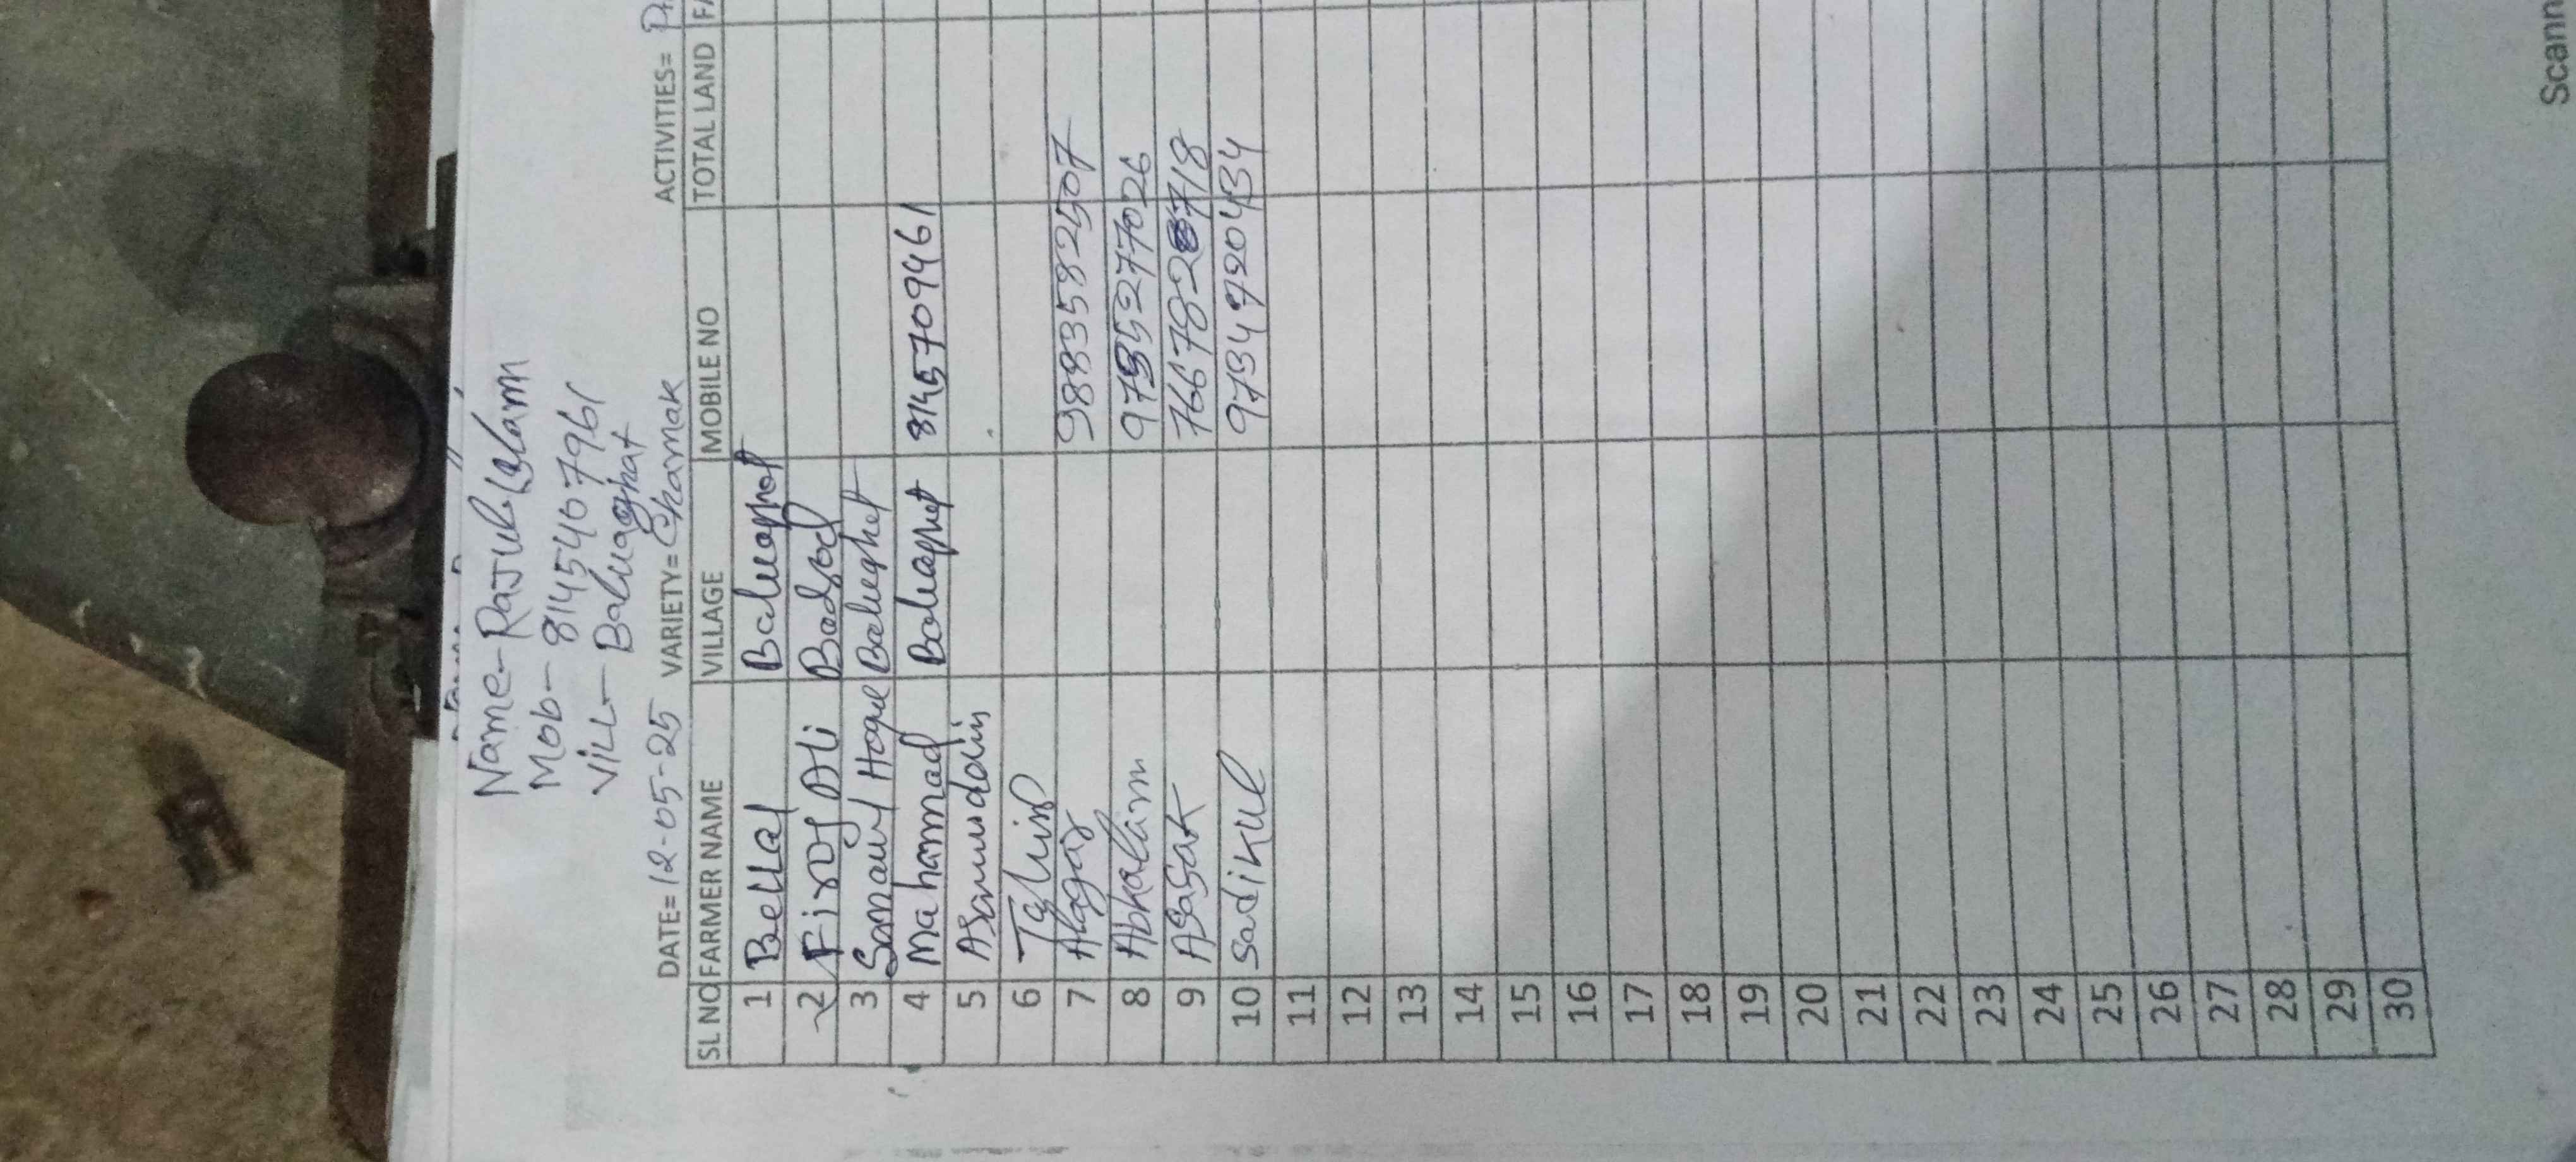 Name- Rajul Islam
Mob- 8145407961
Vill- Baluaghat
DATE= 12-05-25 VARIETY= Chamak ACTIVITIES=
SL NO FARMER NAME VILLAGE MOBILE NO TOTAL LAND
1 Bellal Baluaghat
2 Firoj Ali
3 Samaul Hoque Balughat
4 Mahammad Boluaghat 8145709461
5 Asamuddin
6
7 9883582507
8 Abhalim 9735277026
9 Asasak
10 Sadikul
11
12
13
14
15
16
17
18
19
20
21
22
23
24
25
26
27
28
29
30
Scann